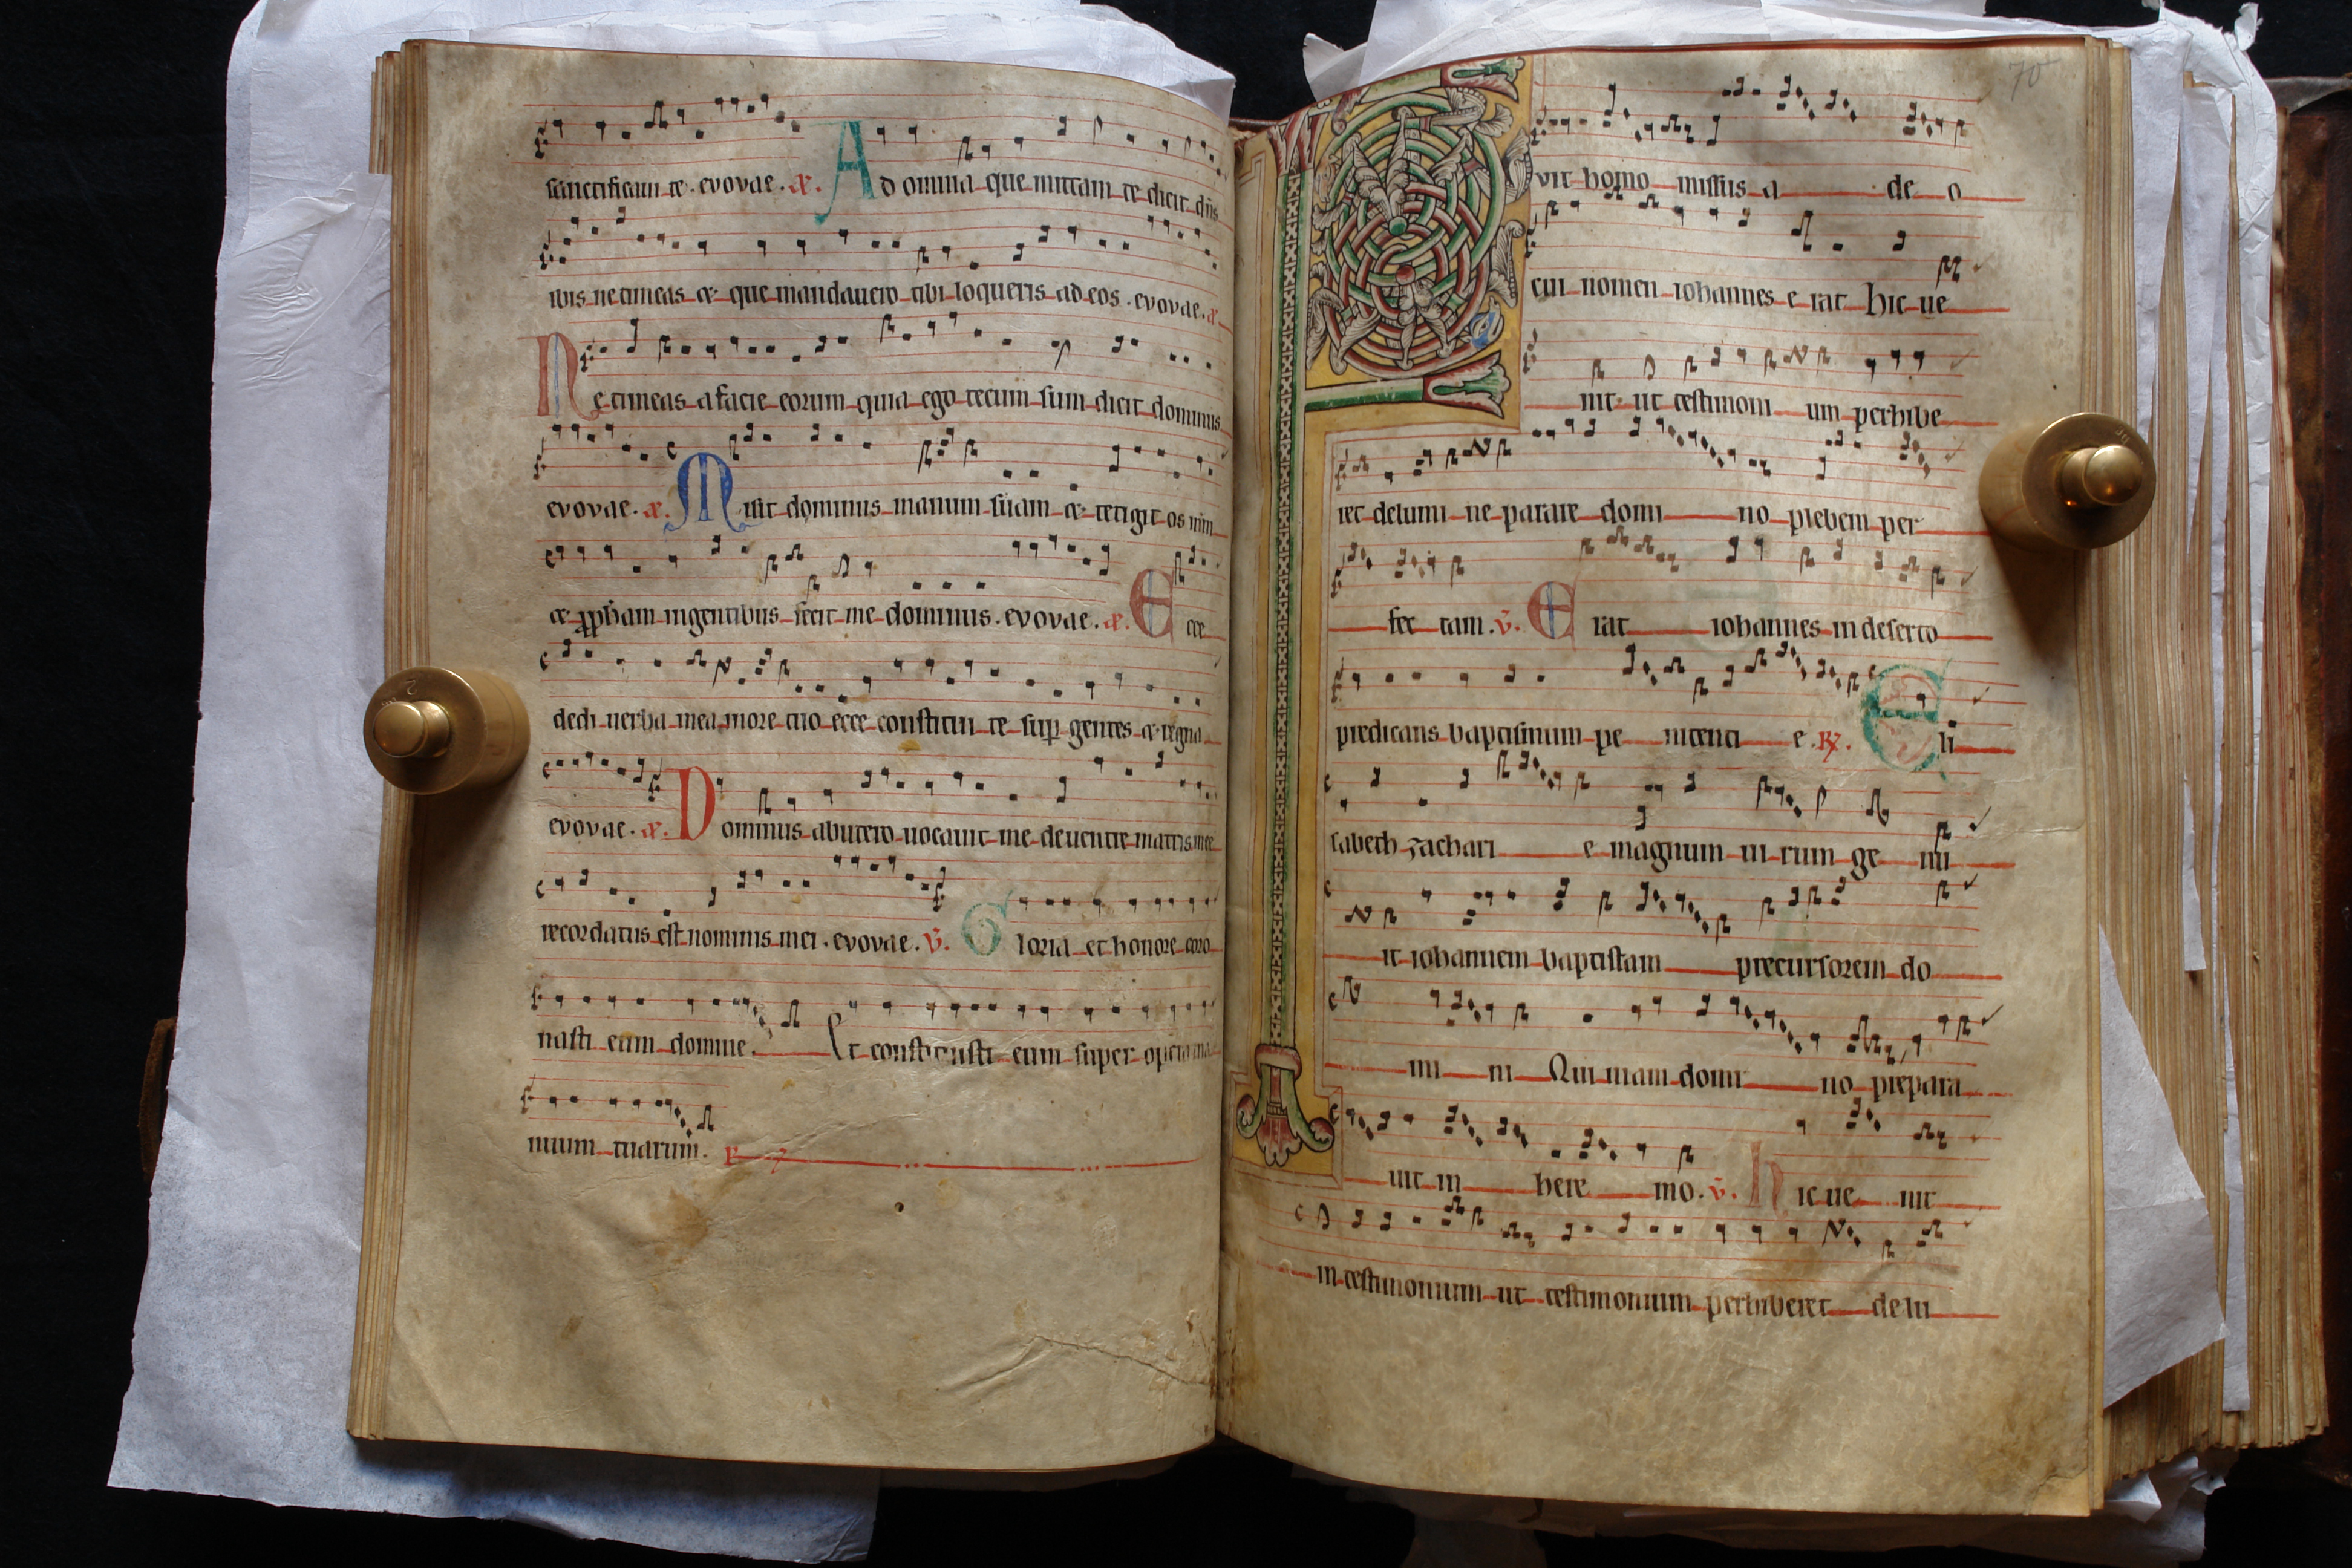 sanctificaui te. evovae. a. Ad omnia que mittam te dicit dn̄s
ibis ne timeas & que mandauero tibi loqueris ad eos. evovae. a.
Ne timeas a facie eorum quia ego tecum sum dicit dominus
evovae. a. Misit dominus manum suam & tetigit os
& ꝓpham in gentibus fecit me dominus. evovae. a. Ecce
dedi uerba mea more tuo ecce constitui te suꝑ gentes & regna
evovae. a. Dominus ab utero uocauit me de uentre matris mee
recordatus est nominis mei. evovae. v̄. Gloria et honore coro
nasti eum domine. Et constituisti eum super opera ma
nuum tuarum. R
70
Fvit homo missus a de o
cui nomen iohannes e rat hic ue
nit ut testimoni um perhibe
ret de lumi ne parare domi no plebem per
fec tam. v̄. Erat iohannes in deserto
predicans baptismum pe nitenti e. R. Eli
sabeth zachari e magnum ui rum ge nu
it iohannem baptistam precursorem do
mi ni Qui uiam domi no prepara
uit in here mo. v̄. Hic ue nit
in testimonium ut testimonium perhiberet de lu